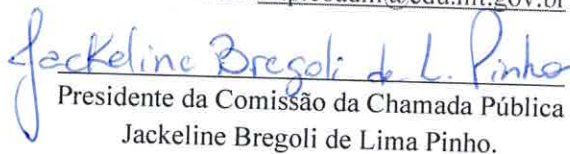 @edu.mt.gov.br
Jackeline Bregoli de L. Pinho
Presidente da Comissão da Chamada Pública
Jackeline Bregoli de Lima Pinho.